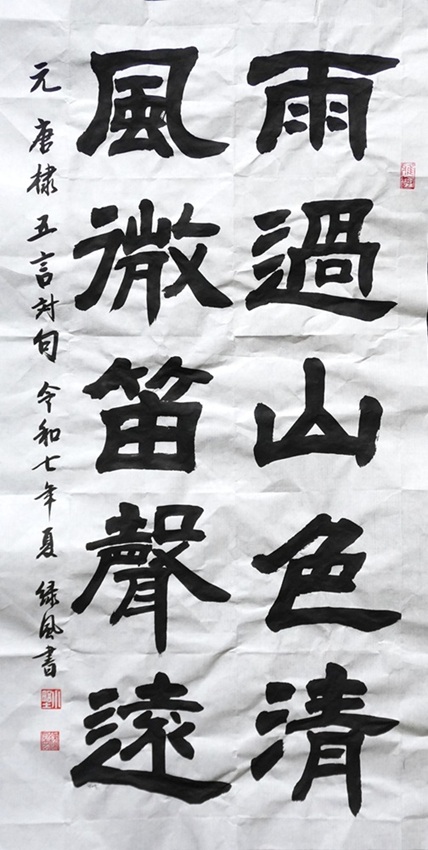 雨過山色清
風微笛聲遠
元 唐棣 五言対句 令和七年夏 緑風書